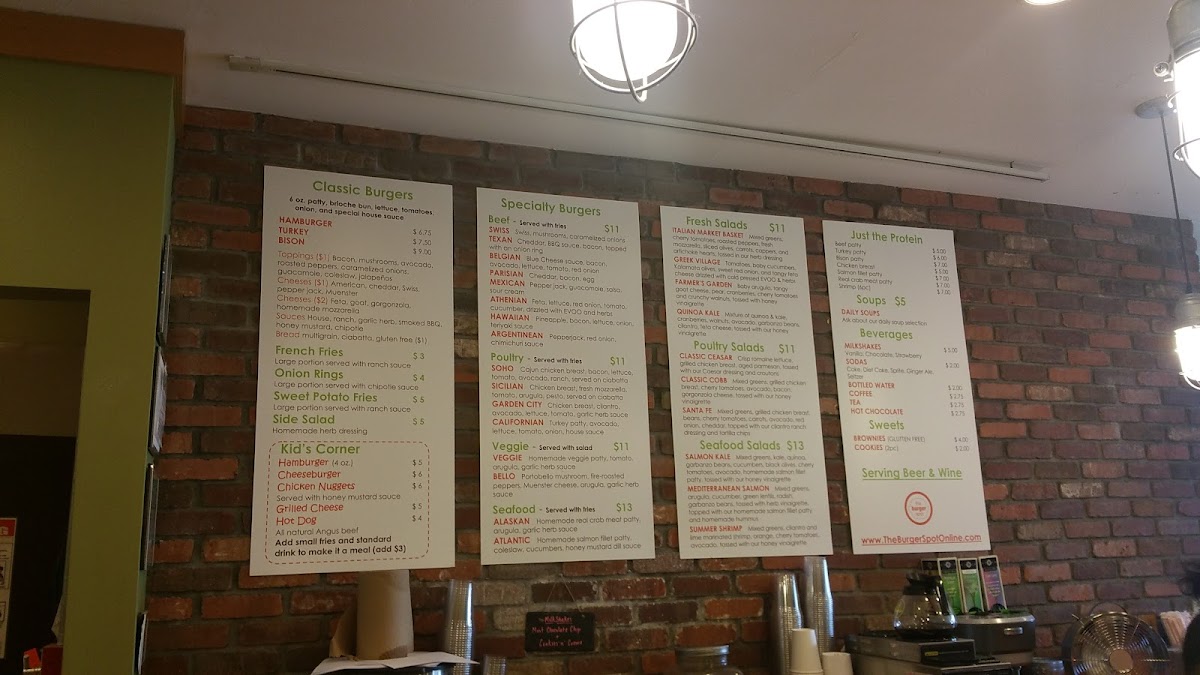 Classic Burgers
6 oz. patty, brioche bun, lettuce, tomatoes
onion, and special house sauce
HAMBURGER $ 6.75
TURKEY $ 7.50
BISON $ 9.00
Toppings ($1) Bacon, mushrooms, avocado,
roasted peppers, caramelized onions,
guacamole, coleslaw, jalapeños
Cheeses ($1) American, cheddar, Swiss,
pepper jack, Muenster
Cheeses ($2) Feta, goat, gorgonzola,
homemade mozzarella
Sauces House, ranch, garlic herb, smoked BBQ,
honey mustard, chipotle
Bread multigrain, ciabatta, gluten free ($1)
French Fries $ 3
Large portion served with ranch sauce
Onion Rings $ 4
Large portion served with chipotle sauce
Sweet Potato Fries $ 5
Large portion served with ranch sauce
Side Salad $ 5
Homemade herb dressing
Kid's Corner
Hamburger (4 oz.) $ 5
Cheeseburger $ 6
Chicken Nuggets $ 6
Served with honey mustard sauce
Grilled Cheese $ 5
Hot Dog $ 4
All natural Angus beef
Add small fries and standard
drink to make it a meal (add $3)
Specialty Burgers
Beef - Served with fries $11
SWISS Swiss, mushrooms, caramelized onions
TEXAN Cheddar, BBQ sauce, bacon, topped
with an onion ring
BELGIAN Blue Cheese sauce, bacon,
avocado, lettuce, tomato, red onion
PARISIAN Cheddar, bacon, egg
MEXICAN Pepper jack, guacamole, salsa,
sour cream
ATHENIAN Feta, lettuce, red onion, tomato,
cucumber, drizzled with EVOO and herbs
HAWAIIAN Pineapple, bacon, lettuce, onion,
teriyaki sauce
ARGENTINEAN Pepperjack, red onion,
chimichurri sauce
Poultry - Served with fries $11
SOHO Cajun chicken breast, bacon, lettuce,
tomato, avocado, ranch, served on ciabatta
SICILIAN Chicken breast, fresh mozzarella,
tomato, arugula, pesto, served on ciabatta
GARDEN CITY Chicken breast, cilantro,
avocado, lettuce, tomato, garlic herb sauce
CALIFORNIAN Turkey patty, avocado,
lettuce, tomato, onion, house sauce
Veggie - Served with salad $11
VEGGIE Homemade veggie patty, tomato,
arugula, garlic herb sauce
BELLO Portobello mushroom, fire-roasted
peppers, Muenster cheese, arugula, garlic herb
sauce
Seafood - Served with fries $13
ALASKAN Homemade real crab meat patty,
arugula, garlic herb sauce
ATLANTIC Homemade salmon fillet patty,
coleslaw, cucumbers, honey mustard dill sauce
Fresh Salads $11
ITALIAN MARKET BASKET Mixed greens,
cherry tomatoes, roasted peppers, fresh
mozzarella, sliced olives, carrots, peppers, and
artichoke hearts, tossed in our herb dressing
GREEK VILLAGE Tomatoes, baby cucumbers,
Kalamata olives, sweet red onion, and tangy feta
cheese drizzled with cold pressed EVOO & herbs
FARMER'S GARDEN Baby arugula, tangy
goat cheese, pear, cranberries, cherry tomatoes
and crunchy walnuts, tossed with honey
vinaigrette
QUINOA KALE Mixture of quinoa & kale,
cranberries, walnuts, avocado, garbanzo beans,
cilantro, feta cheese, tossed with our honey
vinaigrette
Poultry Salads $11
CLASSIC CEASAR Crisp romaine lettuce,
grilled chicken breast, aged parmesan, tossed
with our Caesar dressing and croutons
CLASSIC COBB Mixed greens, grilled chicken
breast, cherry tomatoes, avocado, bacon,
gorgonzola cheese, tossed with our honey
vinaigrette
SANTA FE Mixed greens, grilled chicken breast
beans, cherry tomatoes, carrots, avocado, red
onion, cheddar, tapped with our cilantro ranch
dressing and tortilla chips
Seafood Salads $13
SALMON KALE Mixed greens, kale, quinoa,
garbanzo beans, cucumbers, black olives, cherry
tomatoes, avocado, homemade salmon fillet
patty, tossed with our honey vinaigrette
MEDITERRANEAN SALMON Mixed greens,
arugula, cucumber, green lentils, radish,
garbanzo beans, tossed with herb vinaigrette,
topped with our homemade salmon fillet patty
and homemade hummus
SUMMER SHRIMP Mixed greens, cilantro and
lime marinated shrimp, orange, cherry tomatoes,
avocado, tossed with our honey vinaigrette
Just the Protein
Beef patty $ 5.00
Turkey patty $ 6.00
Bison patty $ 7.00
Chicken breast $ 5.00
Salmon fillet patty $ 7.00
Real crab meat patty $ 7.00
Shrimp (6pc) $ 7.00
Soups $5
DAILY SOUPS
Ask about our daily soup selection
Beverages
MILKSHAKES $ 5.00
Vanilla, Chocolate, Strawberry
SODAS $ 2.00
Coke, Diet Coke, Sprite, Ginger Ale,
Seltzer
BOTTLED WATER $ 2.00
COFFEE $ 2.75
TEA $ 2.75
HOT CHOCOLATE $ 2.75
Sweets
BROWNIES (GLUTEN FREE) $ 4.00
COOKIES (2pc) $ 2.00
Serving Beer & Wine
the
burger
spot
www.TheBurgerSpotOnline.com
MilkShakes
Mint Chocolate Chip
Cookies n' Cream